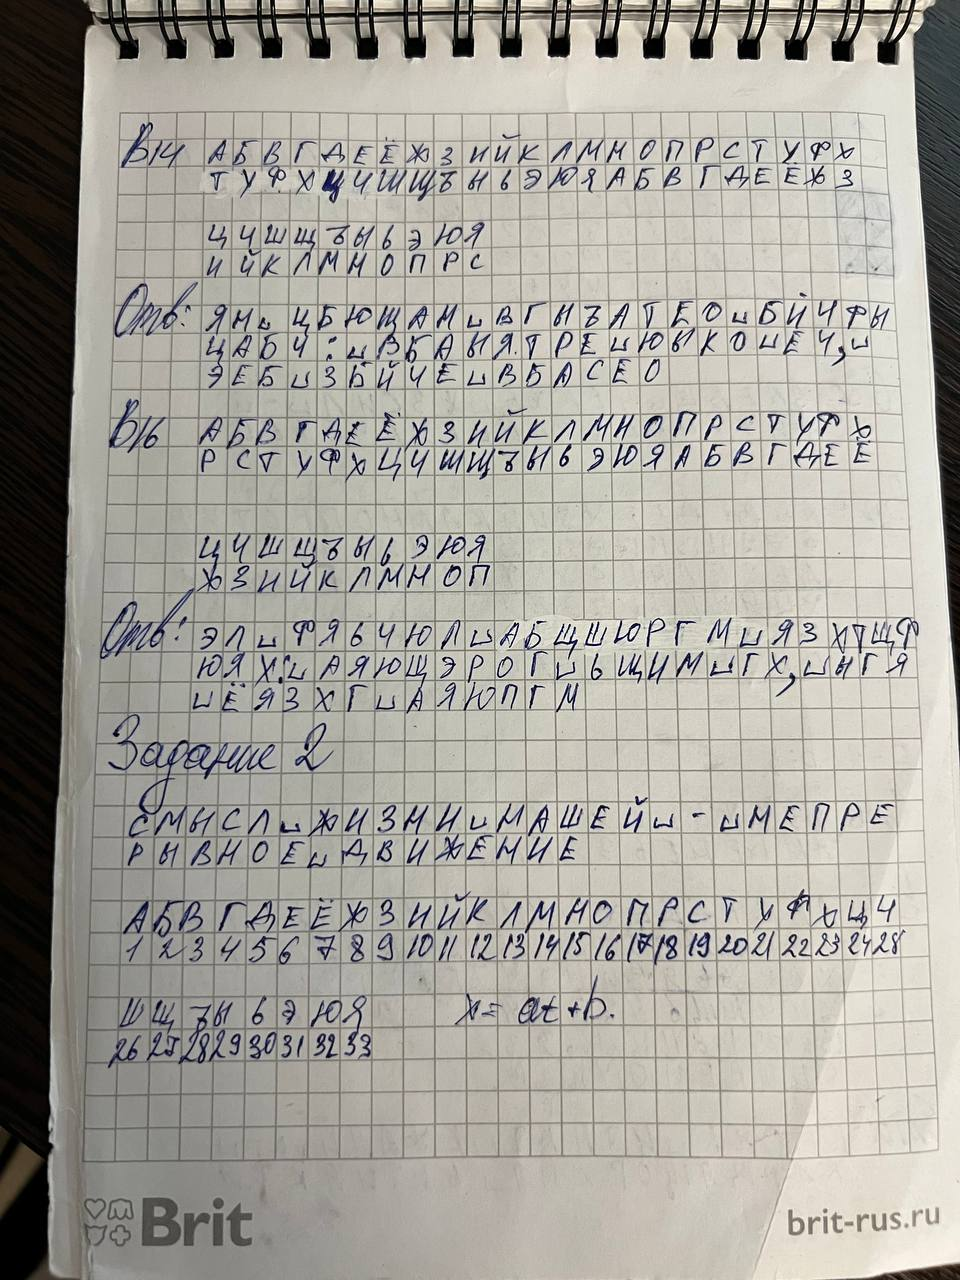 В14 А Б В Г Д Е Ё Ж З И Й К Л М Н О П Р С Т У Ф Х
Т У Ф Х Ц Ч Ш Щ Ъ Ы Ь Э Ю Я А Б В Г Д Е Ё Ж З
Ц Ч Ш Щ Ъ Ы Ь Э Ю Я
И Й К Л М Н О П Р С
Отв: Я Н ␣ Ц Б Ю Щ А Н ␣ В Г Н Ъ А Т Е О ␣ Б Й Ч Ф Ы
Ц А Б Ч : ␣ В Б А Ы Я Т Р Е ␣ Ю Ы К О ␣ Ё Ч , ␣
Э Ё Б ␣ З Б Й Ч Ё ␣ В Б А С Ё О
В16 А Б В Г Д Е Ё Ж З И Й К Л М Н О П Р С Т У Ф Х
Р С Т У Ф Х Ц Ч Ш Щ Ъ Ы Ь Э Ю Я А Б В Г Д Е Ё
Ц Ч Ш Щ Ъ Ы Ь Э Ю Я
Ж З И Й К Л М Н О П
Отв: Э Л ␣ Ф Я Ь Ч Ю Л ␣ А Б Щ Ш Ю Р Г М ␣ Я З Х Т Щ Ф
Ю Я Х : ␣ А Я Ю Щ Э Р О Г ␣ Ь Щ И М ␣ Г Х , ␣ Ы Г Я
␣ Ё Я З Х Г ␣ А Я Ю П Г М
Задание 2
С М Ы С Л ␣ Ж И З Н И ␣ Н А Ш Е Й ␣ - ␣ Н Е П Р Е
Р Ы В Н О Е ␣ Д В И Ж Е Н И Е
А Б В Г Д Е Ё Ж З И Й К Л М Н О П Р С Т У Ф Х Ц Ч
1 2 3 4 5 6 7 8 9 10 11 12 13 14 15 16 17 18 19 20 21 22 23 24 25
Ш Щ Ъ Ы Ь Э Ю Я x = at + b.
26 27 28 29 30 31 32 33
Brit
brit-rus.ru